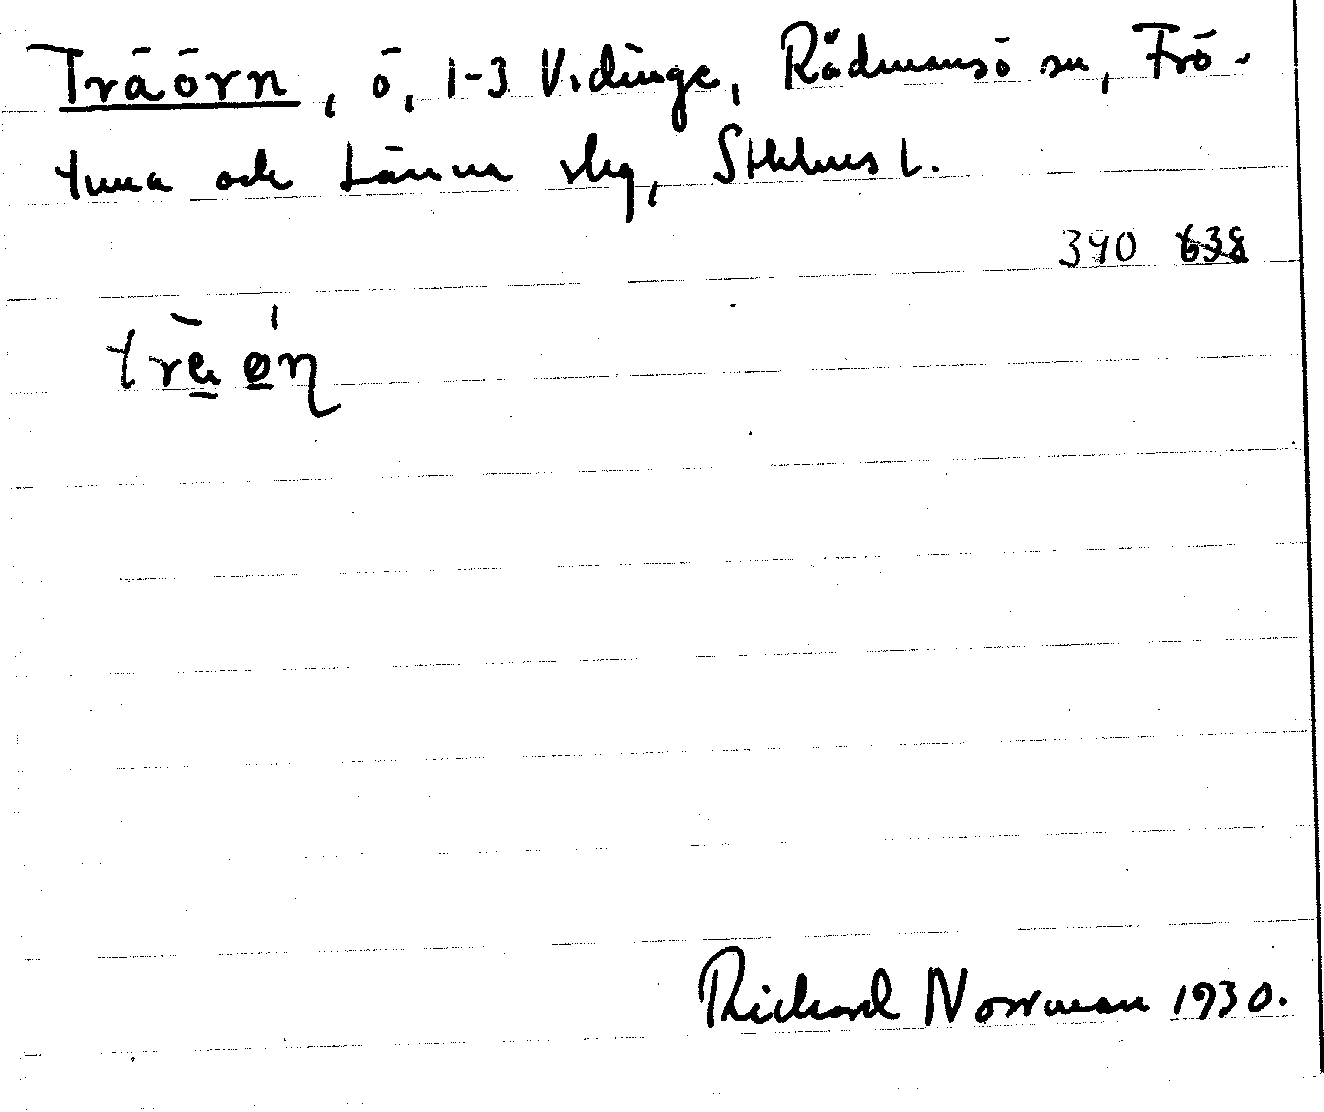 Träörn, ö, 1-3 Vidinge, Rådmansö sn, Frö-
tuna och Länna skg, Sthlms l.
340 638
Richard Norrman 1930.